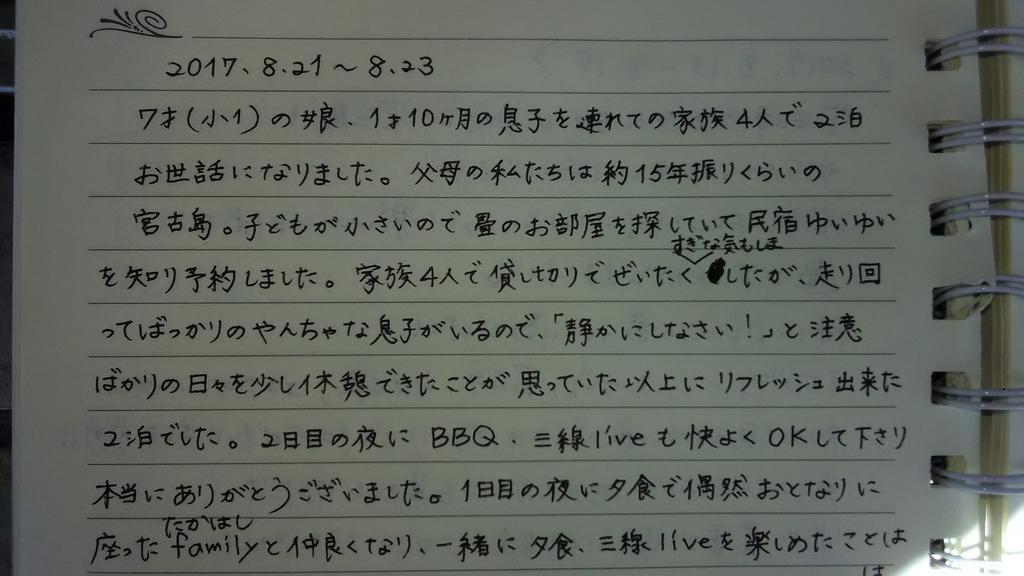 2017、8.21～8.23
7才(小1)の娘、1才10ヶ月の息子を連れての家族4人で2泊
お世話になりました。父母の私たちは約15年振りくらいの
宮古島。子どもが小さいので畳のお部屋を探していて民宿ゆいゆい
すぎな気もしま
を知り予約しました。家族4人で貸し切りでぜいたくしたが、走り回
ってばっかりのやんちゃな息子がいるので、「静かにしなさい!」と注意
ばかりの日々を少し休憩できたことが思っていた以上にリフレッシュ出来た
2泊でした。2日目の夜にBBQ、三線liveも快よくOKして下さり
本当にありがとうございました。1日目の夜に夕食で偶然おとなりに
たかはし
座ったfamilyと仲良くなり、一緒に夕食、三線liveを楽しめたことは
は